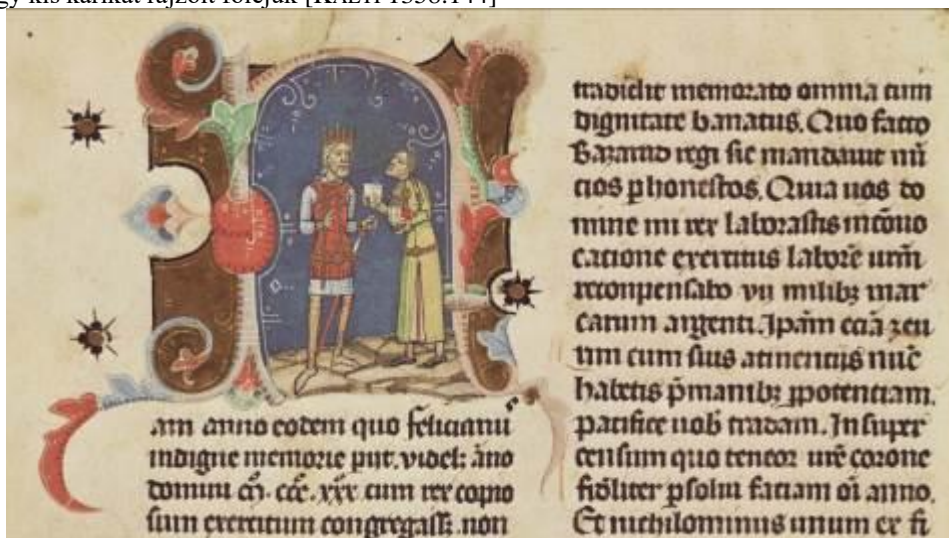 gy kis karikát rajzolt föléjük [KÁLTI 1358:144]
am anno eodem quo feliciani
indigne memorie videl: āno
domini m̄. ccc. xxx cum rex copio
sum exercitum congregass; non
tradidit memorato omnia cum
dignitate banatus. Quo facto
Bazarad regi sic mandauit nū
cios p honestos. Quia uos do
mine mi rex laborastis in cōuo
catione exercitus laborē urm̄
reconpensabo vii milib; mar
carum argenti. Ipām eciā zeu
rim cum suis atinencijs nūc
habetis p̄ manib; p potentiam.
pacifice uob̄ tradam. Insuper
censum quo teneor ure corone
fidliter psolui faciam oi anno.
Et nichilominus unum ex fi